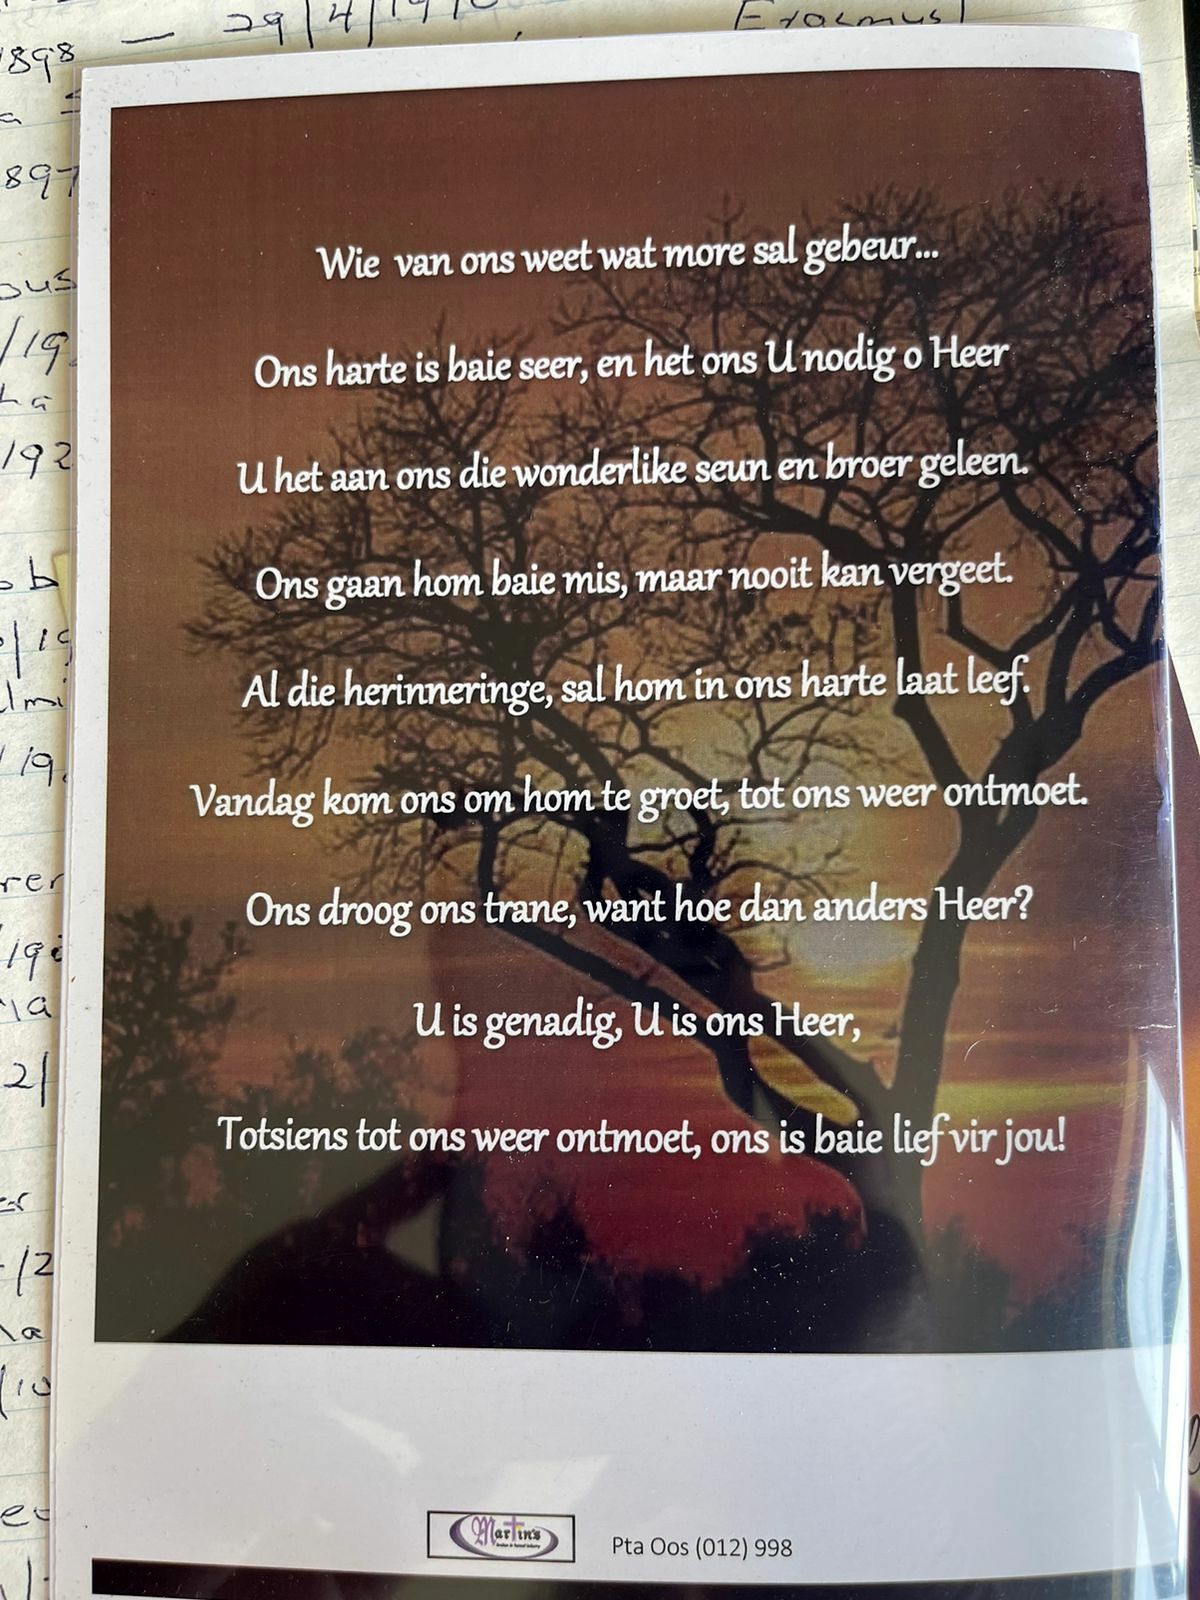 29/4/19
Erasmus
1898
897
ous
/19
192
ob
/19
/19
rer
/19
la
2/
/2
la
/10
Wie van ons weet wat more sal gebeur...
Ons harte is baie seer, en het ons U nodig o Heer
U het aan ons die wonderlike seun en broer geleen.
Ons gaan hom baie mis, maar nooit kan vergeet.
Al die herinneringe, sal hom in ons harte laat leef.
Vandag kom ons om hom te groet, tot ons weer ontmoet.
Ons droog ons trane, want hoe dan anders Heer?
U is genadig, U is ons Heer,
Totsiens tot ons weer ontmoet, ons is baie lief vir jou!
Martin's
Pta Oos (012) 998